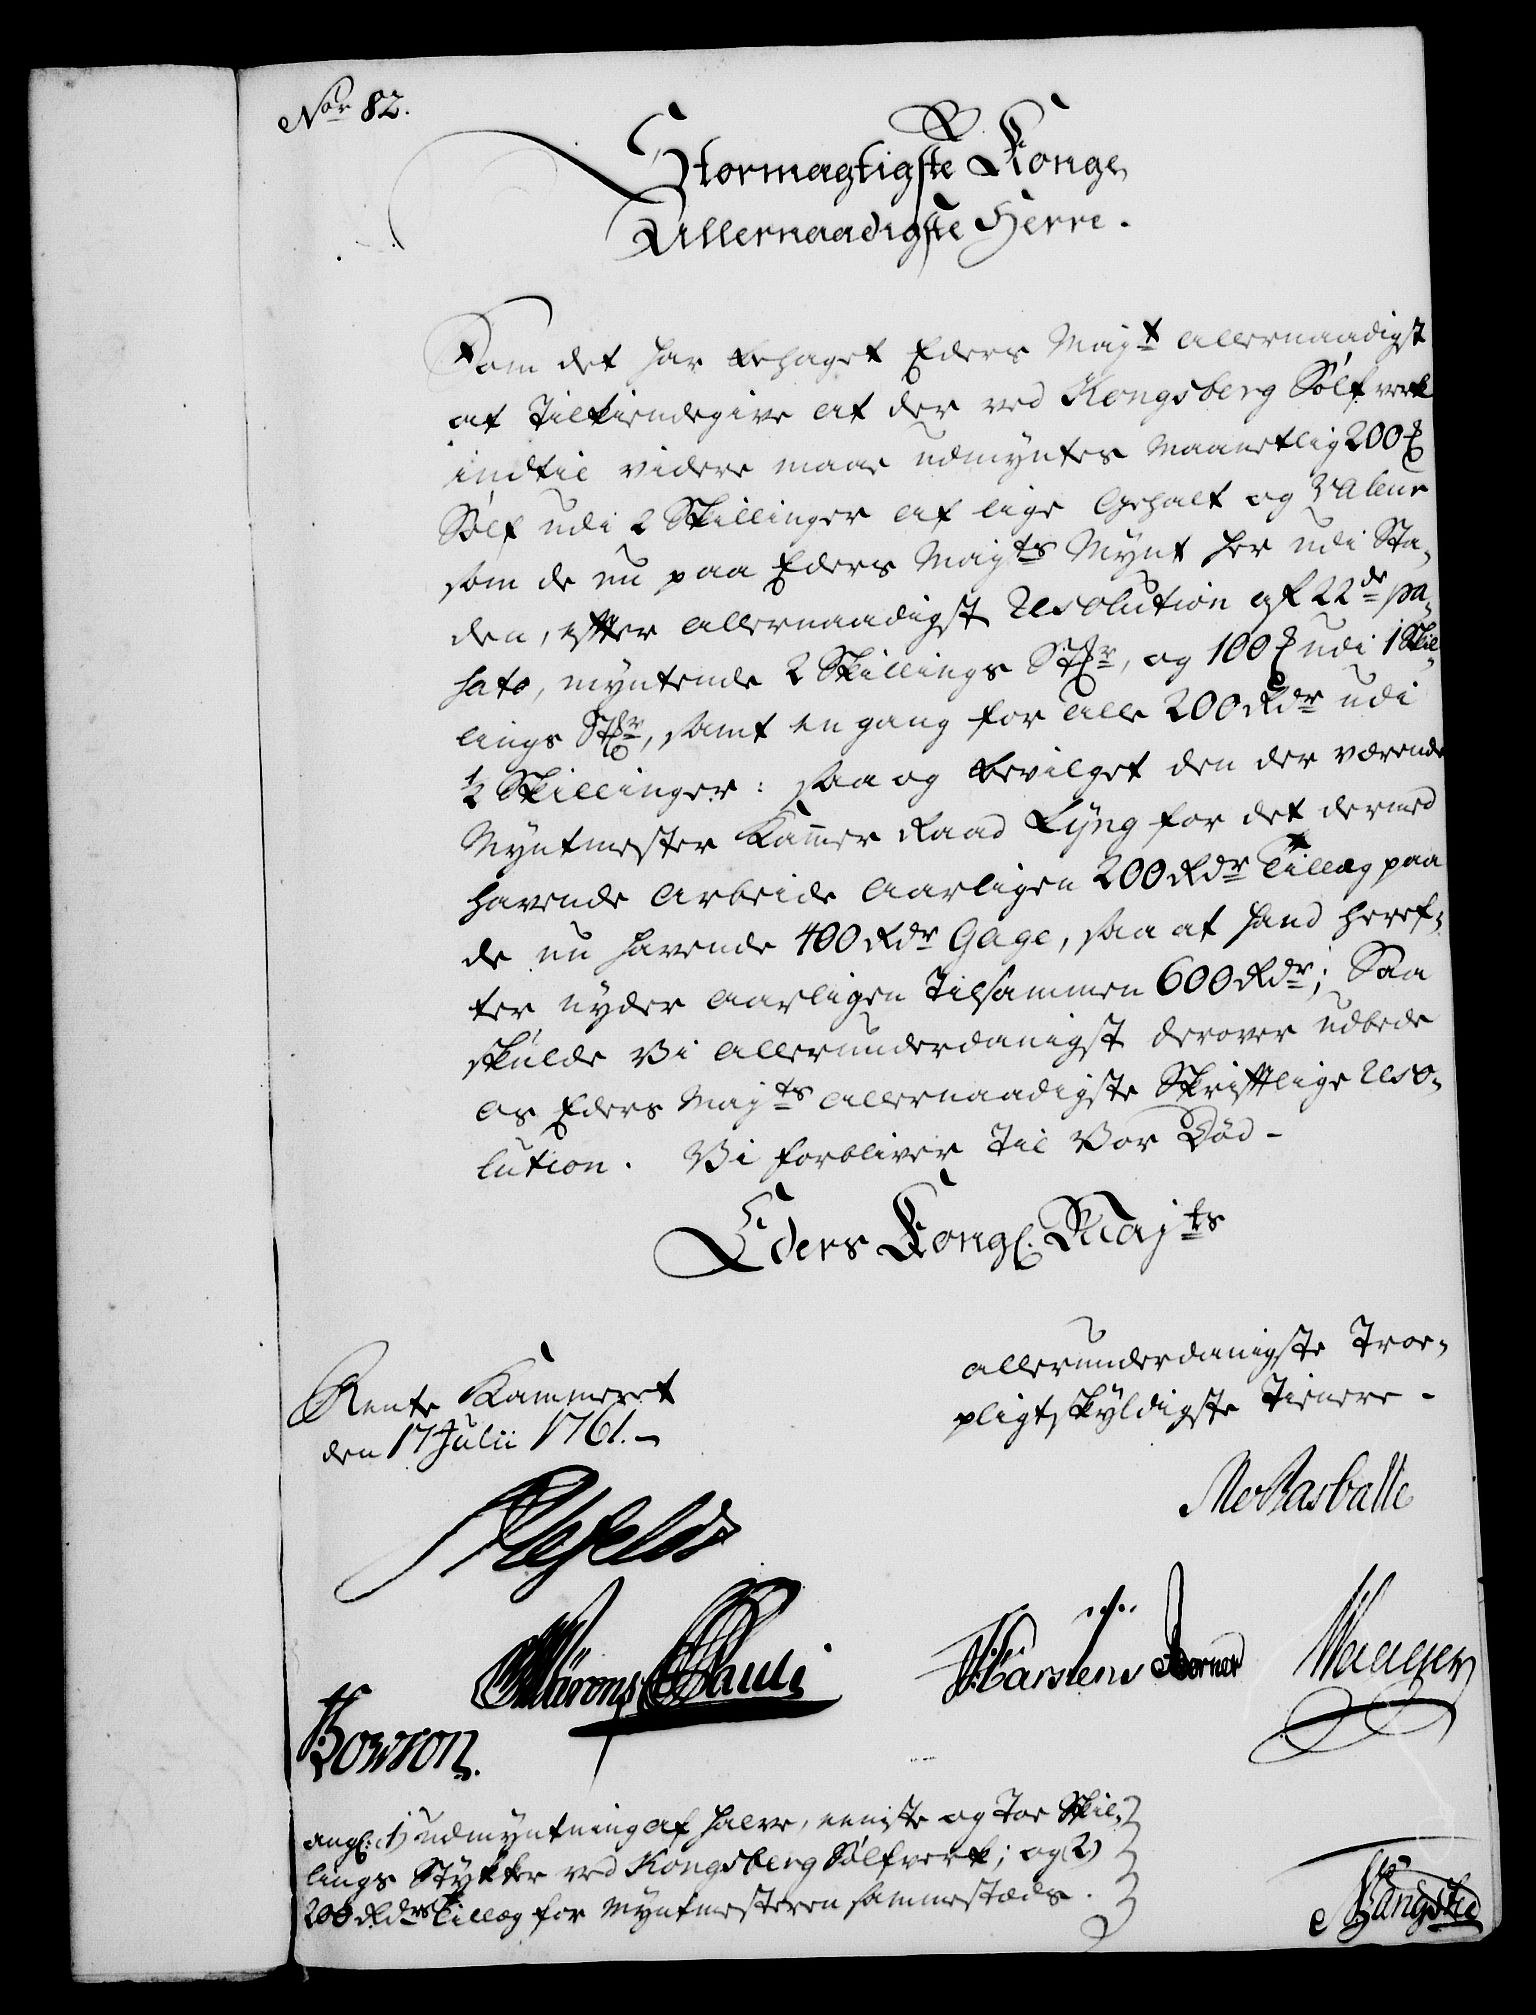 Nor 82.
Stormagtigste Konge
Allernaadigste Herre.
Som det har behaget Eders Majt allernaadigst
at tilkiendegive at der ved Kongsberg Sølfverk
indtil videre maae udmyntes Maanetlig 200 ℔
Sølf udi 2 Skillinger af lige Gehalt og Valeur
som de nu paa Eders Majts Mynt her udi Sta-
den, efter allernaadigst Resolution af 22de pa-
sato, myntende 2 Skillings Stkr, og 100 ℔ udi 1 Skil-
lings Stkr, samt en gang for alle 200 Rdr udi
½ Skillinger: saa og bevilget den der værende
Myntmester Kammer Raad Lyng for det dermed
havende Arbeide Aarligen 200 Rdr Tillæg paa
de nu havende 400 Rdr Gage, saa at hand heref-
ter nyder Aarligen Tilsammen 600 Rdr; Saa
skulde Vi allerunderdanigst derover udbede
os Eders Majts allernaadigste Skriftlige Reso-
lution. Vi forbliver til Vor Død -
Eders Kongl. Majts
allerunderdanigste Troe-
pligtskyldigste Tienere -
Rente Kammeret
den 17 Julii 1761. -
Ahlefeldt
Pauli
Karstens
Bowson.
angl: 1) udmyntning af halve, eeniste og Toe Skil-
lings Stykker ved Kongsberg Sølfverk; og 2)
200 Rdrs Tillæg for Myntmesteren sammestæds.